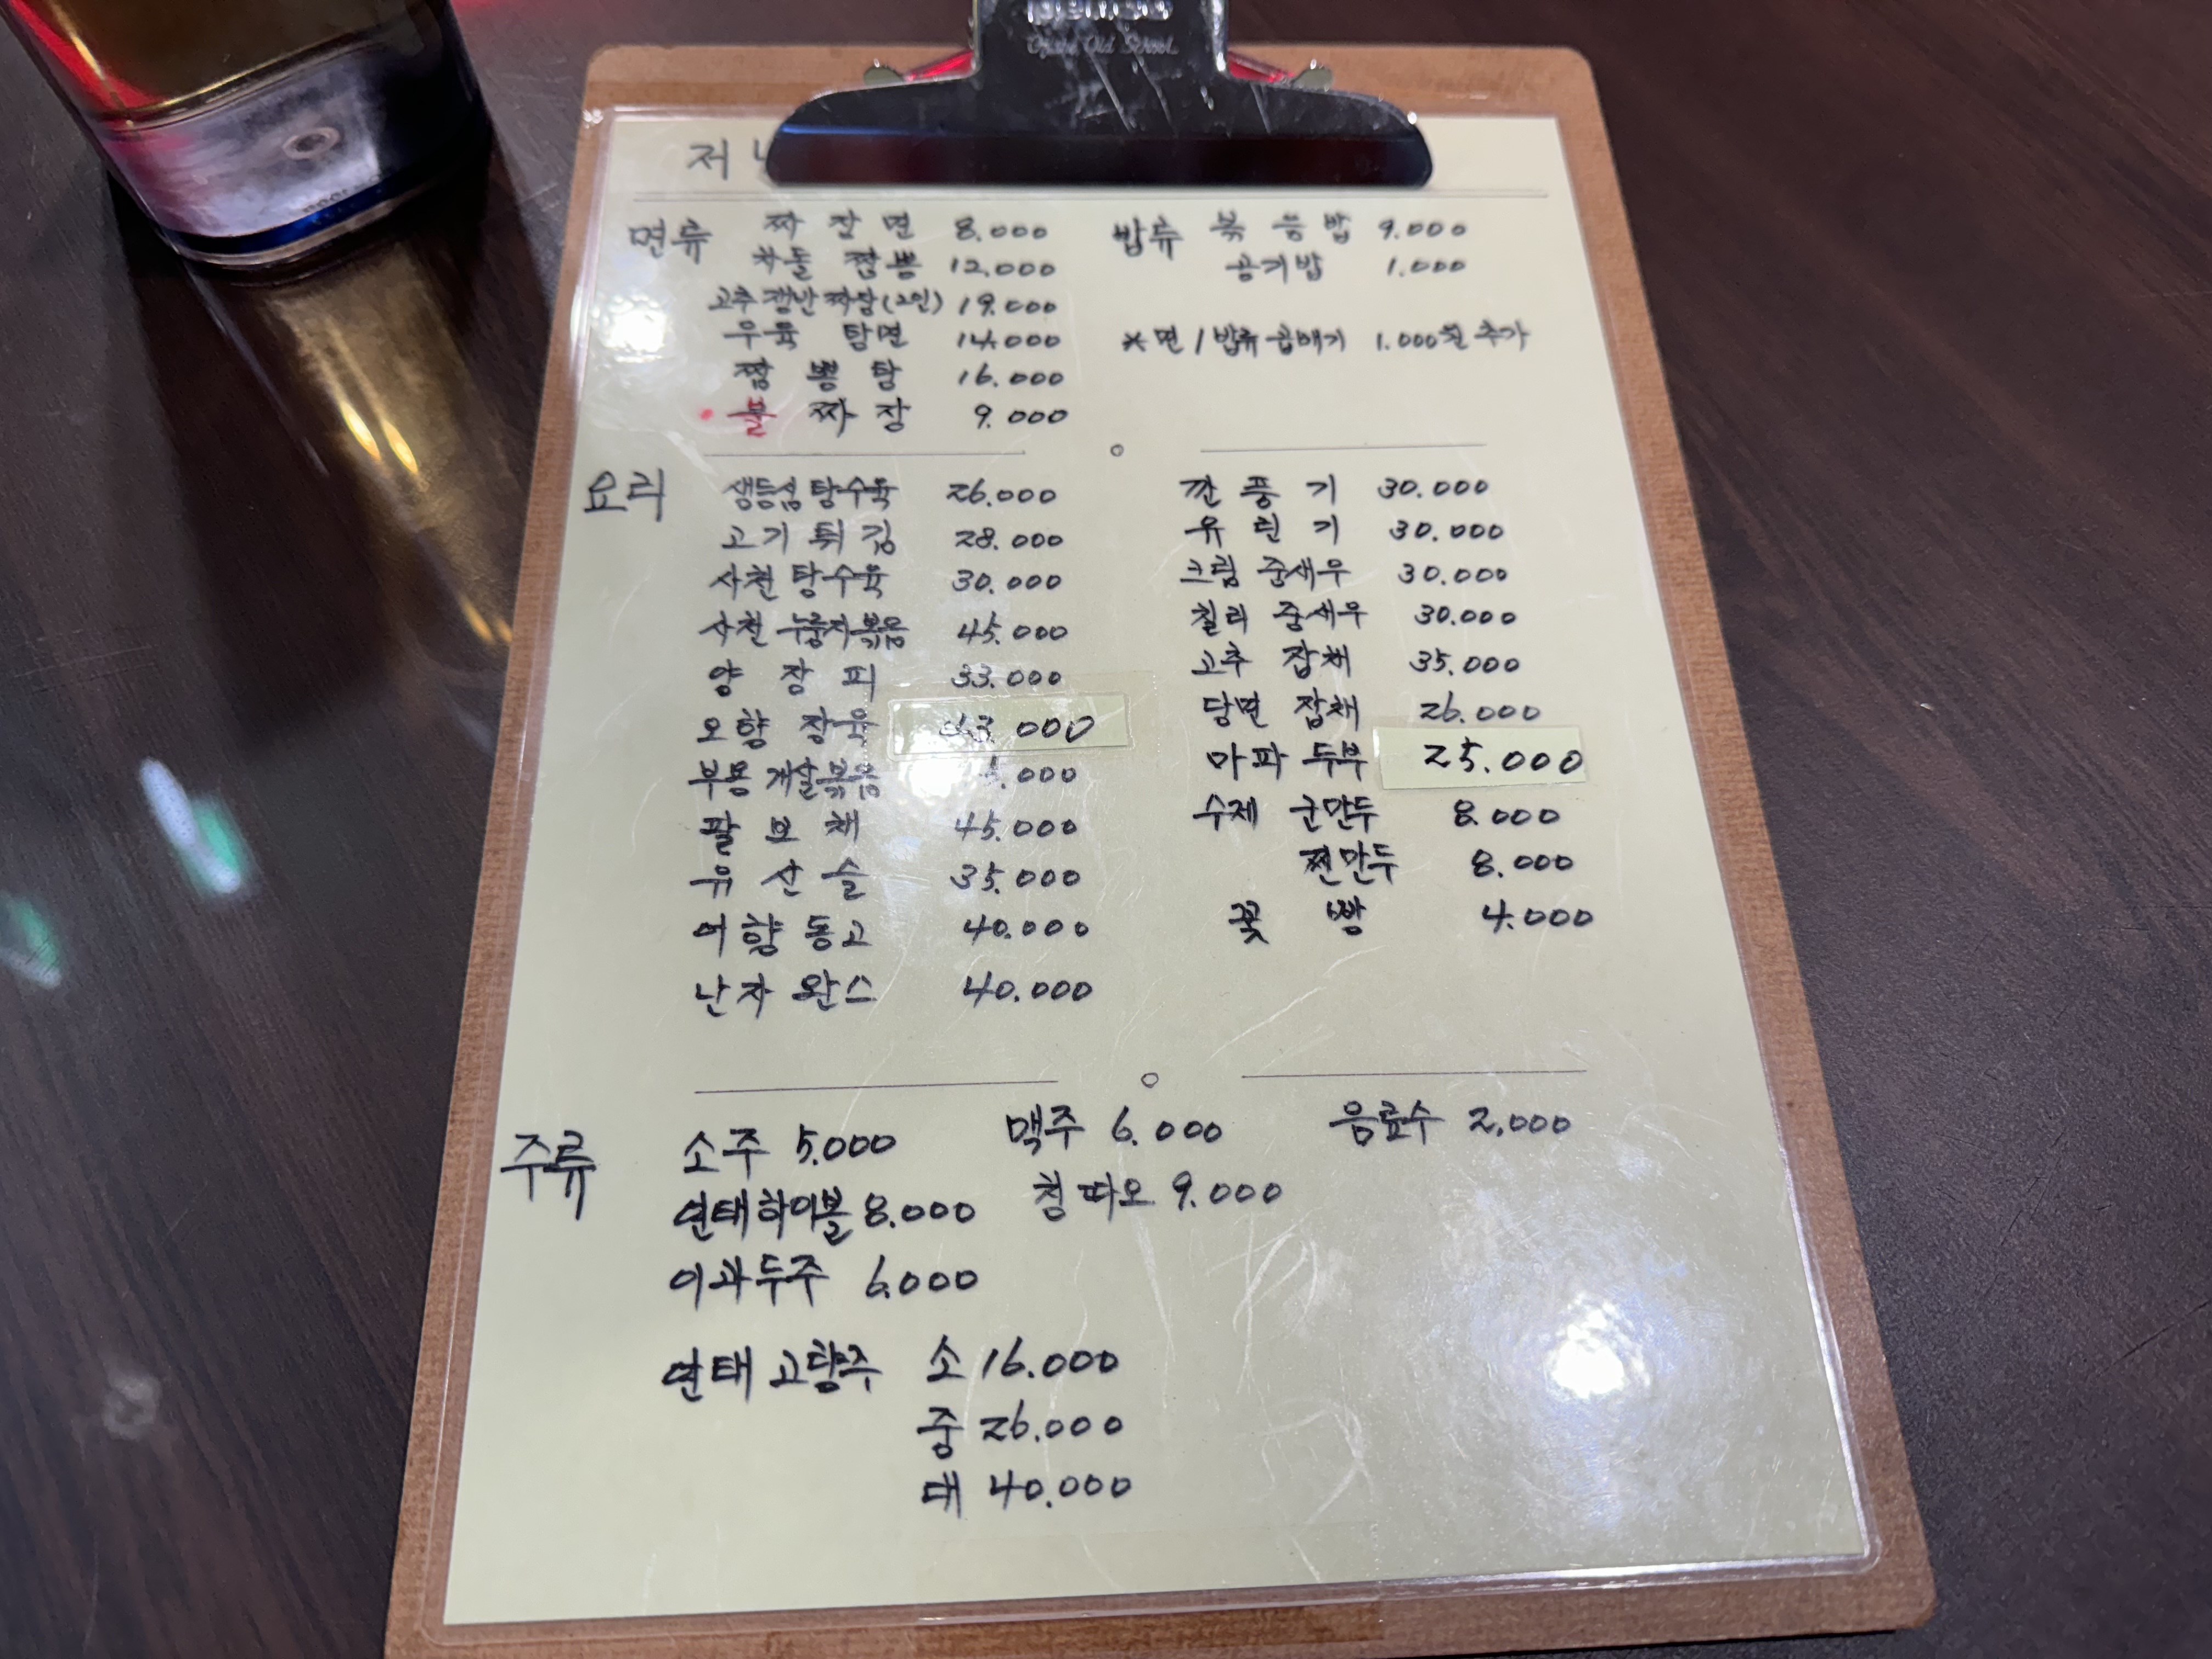 Of the Old School
저
면류 짜장면 8.000
차돌 짬뽕 12.000
고추쟁반짜장(2인) 19.000
우육 탕면 14.000
짬뽕탕 16.000
불 짜장 9.000
밥류 볶음밥 9.000
공기밥 1.000
* 면 / 밥류 곱배기 1.000원 추가
요리 생등심탕수육 26.000
고기튀김 28.000
사천탕수육 30.000
사천 누룽지볶음 45.000
양장피 33.000
오향 장육 43.000
부용게살볶음 .000
팔보채 45.000
유산슬 35.000
어향동고 40.000
난자완스 40.000
깐풍기 30.000
유린기 30.000
크림 중새우 30.000
칠리 중새우 30.000
고추 잡채 35.000
당면 잡채 26.000
마파 두부 25.000
수제 군만두 8.000
찐만두 8.000
꽃빵 4.000
주류 소주 5.000 맥주 6.000 음료수 2,000
연태하이볼 8.000 칭따오 9.000
이과두주 6.000
연태고량주 소 16.000
중 26.000
대 40.000